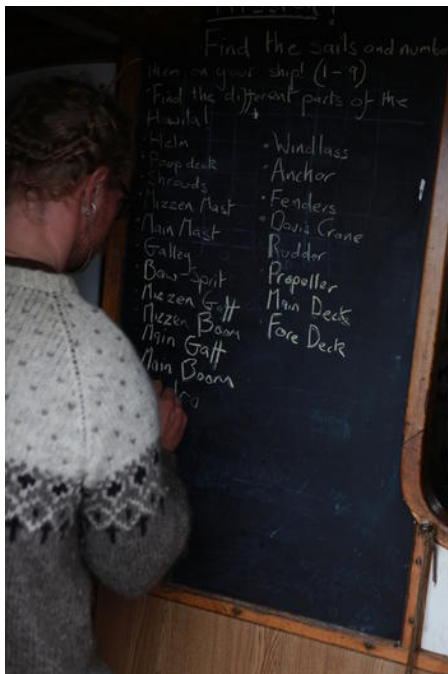 Mission!
Find the sails and numbe
them on your ship! (1-9)
· Find the different parts of the
Havila!
· Helm
· Poop deck
· Shrouds
· Mizzen Mast
· Main Mast
· Galley
· Bow Sprit
· Mizzen Gaff
· Mizzen Boom
· Main Gaff
· Main Boom
· Windlass
· Anchor
· Fenders
· Davis Crane
· Rudder
· Propeller
· Main Deck
· Fore Deck